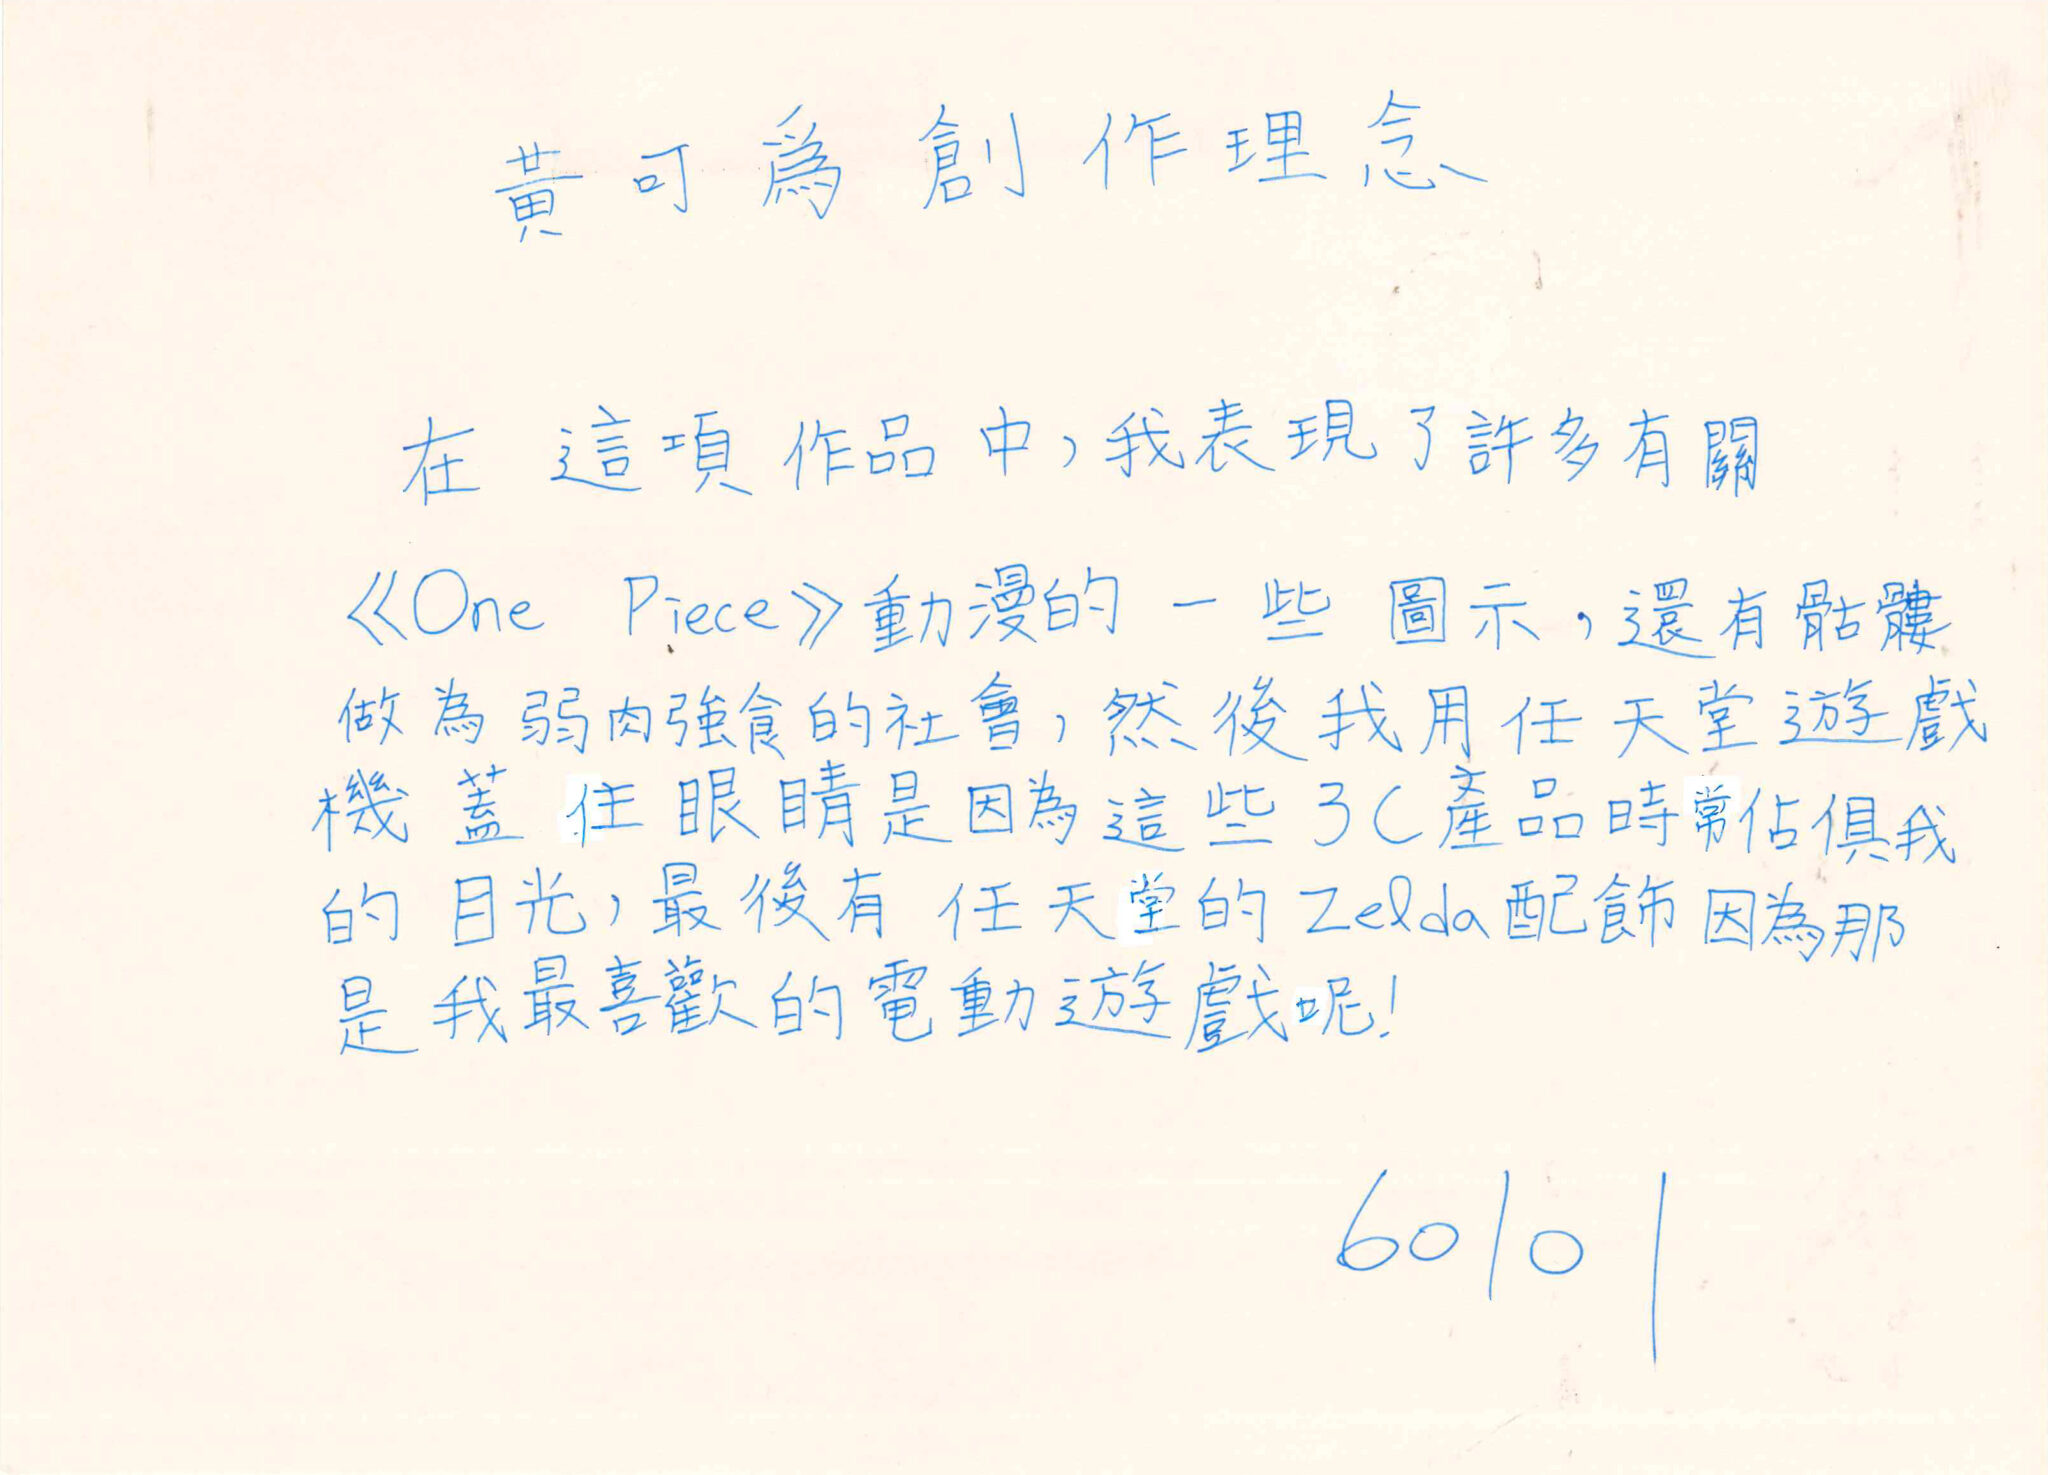 黃可爲創作理念
在這項作品中，我表現了許多有關
《One Piece》動漫的一些圖示，還有骷髏
做為弱肉強食的社會，然後我用任天堂遊戲
機蓋住眼睛是因為這些3C產品時常佔俱我
的目光，最後有任天堂的Zelda配飾因為那
是我最喜歡的電動遊戲呢!
60101